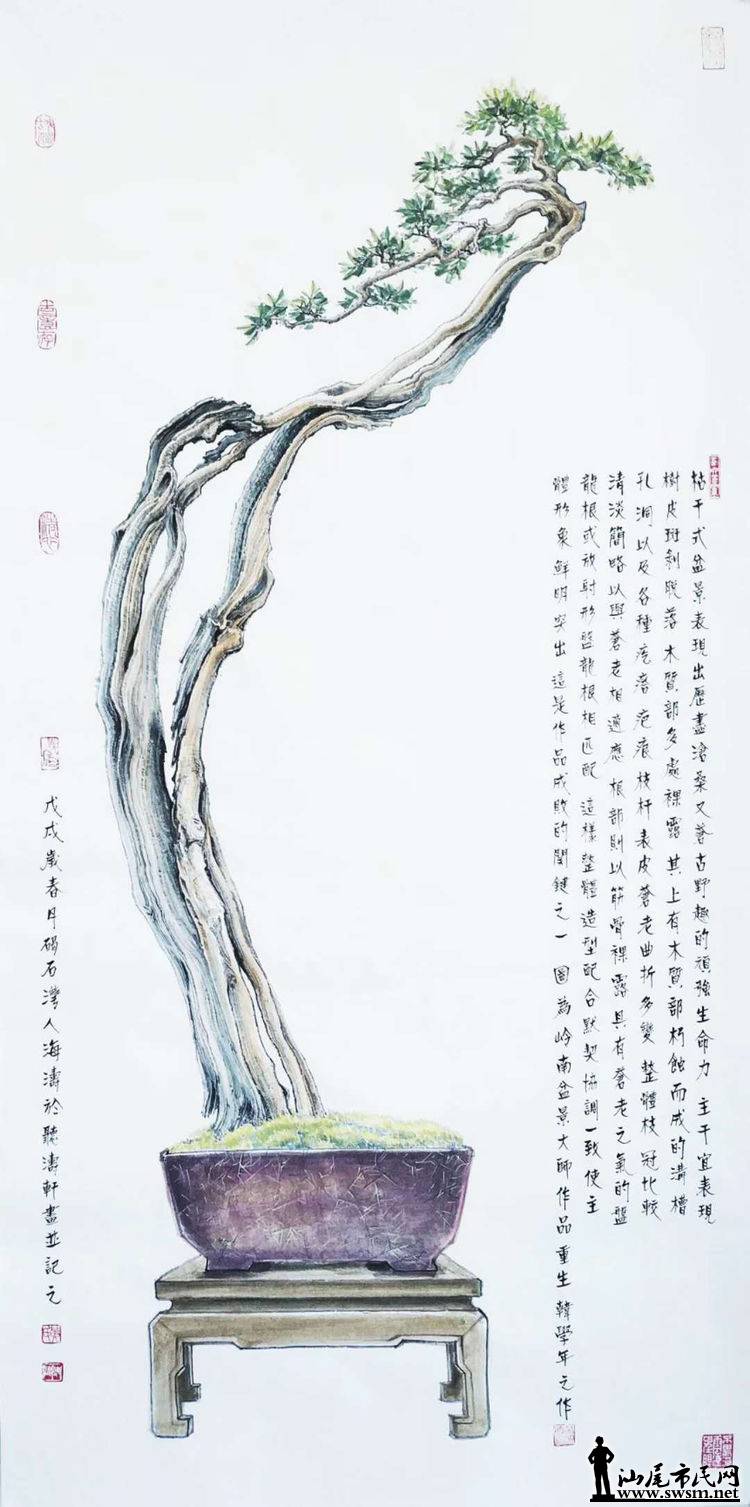 枯干式盆景表現出歷盡滄桑又蒼古野趣的頑強生命力 主干宜表現
樹皮斑剝脫落 木質部多處裸露 其上有木質部朽蝕而成的溝槽
孔洞以及各種疙瘩疤痕 枝杆表皮蒼老曲折多變 整體枝冠比較
清淡簡略以與蒼老相適應 根部則以筋骨裸露具有蒼老之氣的盤
龍根或放射形盤龍根相匹配 這樣整體造型配合默契協調一致使主
體形象鮮明突出 這是作品成敗的関鍵之一 圖為岭南盆景大師作品 重生 韓學年之作
戊戌歲春月碣石灣人海濤於聽濤軒畫並記之
汕尾市民网
www.swsm.net